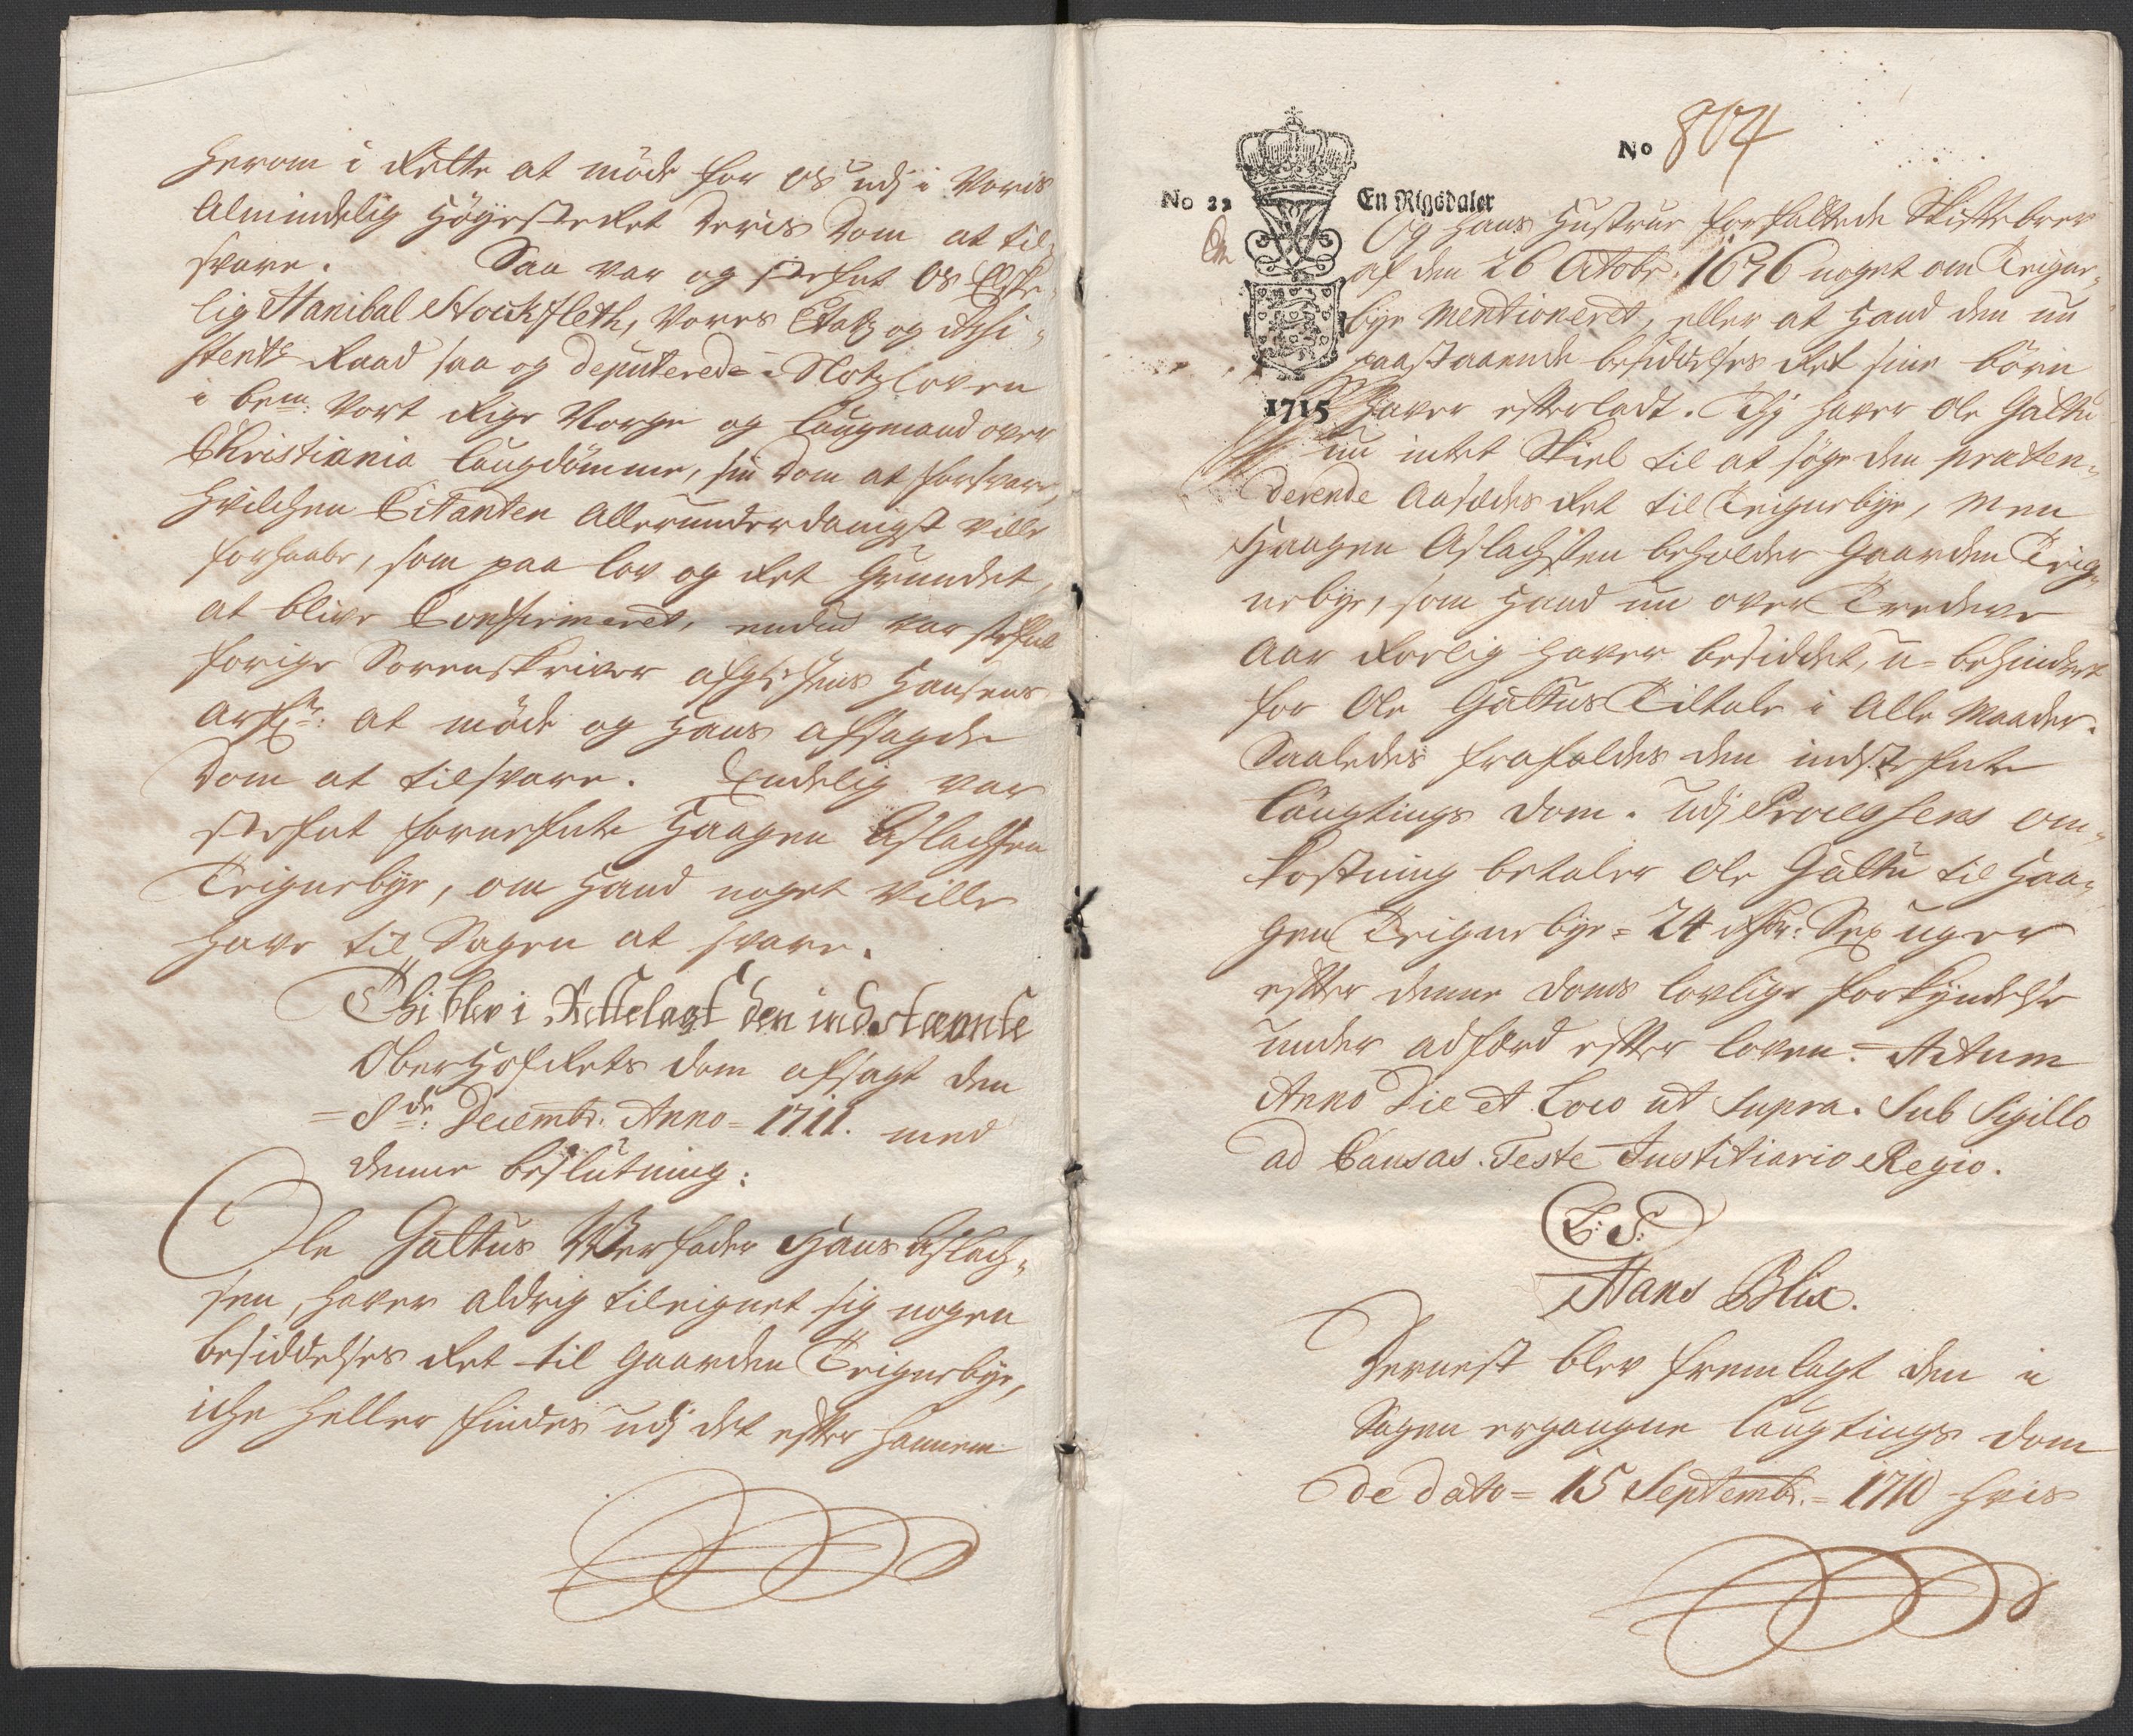 herom i Rette at möde for os udj i Voris
Almindelig Höyesteret deris dom at til,,
svare. Saa var og stefnt os Elske,,
lig Hanibal Stockfleth, vores Etatz og Assi,,
stentz Raad saa og deputerede i Slotzloven
i bem: vort Rige Norge og Laugmand over
Christiania Laugdömme, sin dom at forsvare,
hvilchen Citanten allerunderdanigst ville
forhaabe, som paa lov og Ret grundet,
at blive Confirmeret, endnu var stefnt
forige Sorenskriver afg: Jens Hansens
arf: at möde og hans afsagde
dom at tilsvare. Endelig var
stefnt fornefnte Haagen Aslachsen
Teignebye, om hand noget ville
have til Sagen at svare.
Thi blev i Rettelagt den indstevnte
OberHofRets dom afsagt den
= 8de: Decembr. Anno = 1711. med
denne beslutning:
Ole Galtus Verfader Hans Aslach,,
sen, haver aldrig tileignet sig nogen
besiddelses Ret til gaarden Teignebye,
iche heller findes udj det efter hannem
No 804
No 22 En Rigsdaler
1715
Og hans Hustrue forfattede Skiftebrev
af den 26 Octobr. 1696 noget om Teigne,,
bye mentioneret, eller at hand den nu
paastaaende besiddelses Ret sine börn
haver efterladt. Thj haver Ole Galtu
nu intet Skiel til at söge den præten,,
derende Aasædes Ret til Teignebye, men
Haagen Aslachsen beholder Gaarden Teig,,
nebye, som hand nu over Tredeve
aar Roelig haver besiddet, u-behindret
for Ole Galtus Tiltale i alle Maader.
Saaledes frafaldes den indstefnte
Laugtings dom. Udj Processens om,,
kostning betaler Ole Galtu til Haa,,
gen Teignebye = 24 Rdr: Sex uger
efter denne doms lovlige forkyndelse
under adfærd efter loven. Actum
Anno Die et Loco ut supra. Sub Sigillo
ad Causas. Teste Justitiario Regio.
L: S:
Hans Blix.
Dernest blev fremlagt den i
Sagen ergangne Laugtings dom
de dato = 15 Septembr. = 1710 hvis